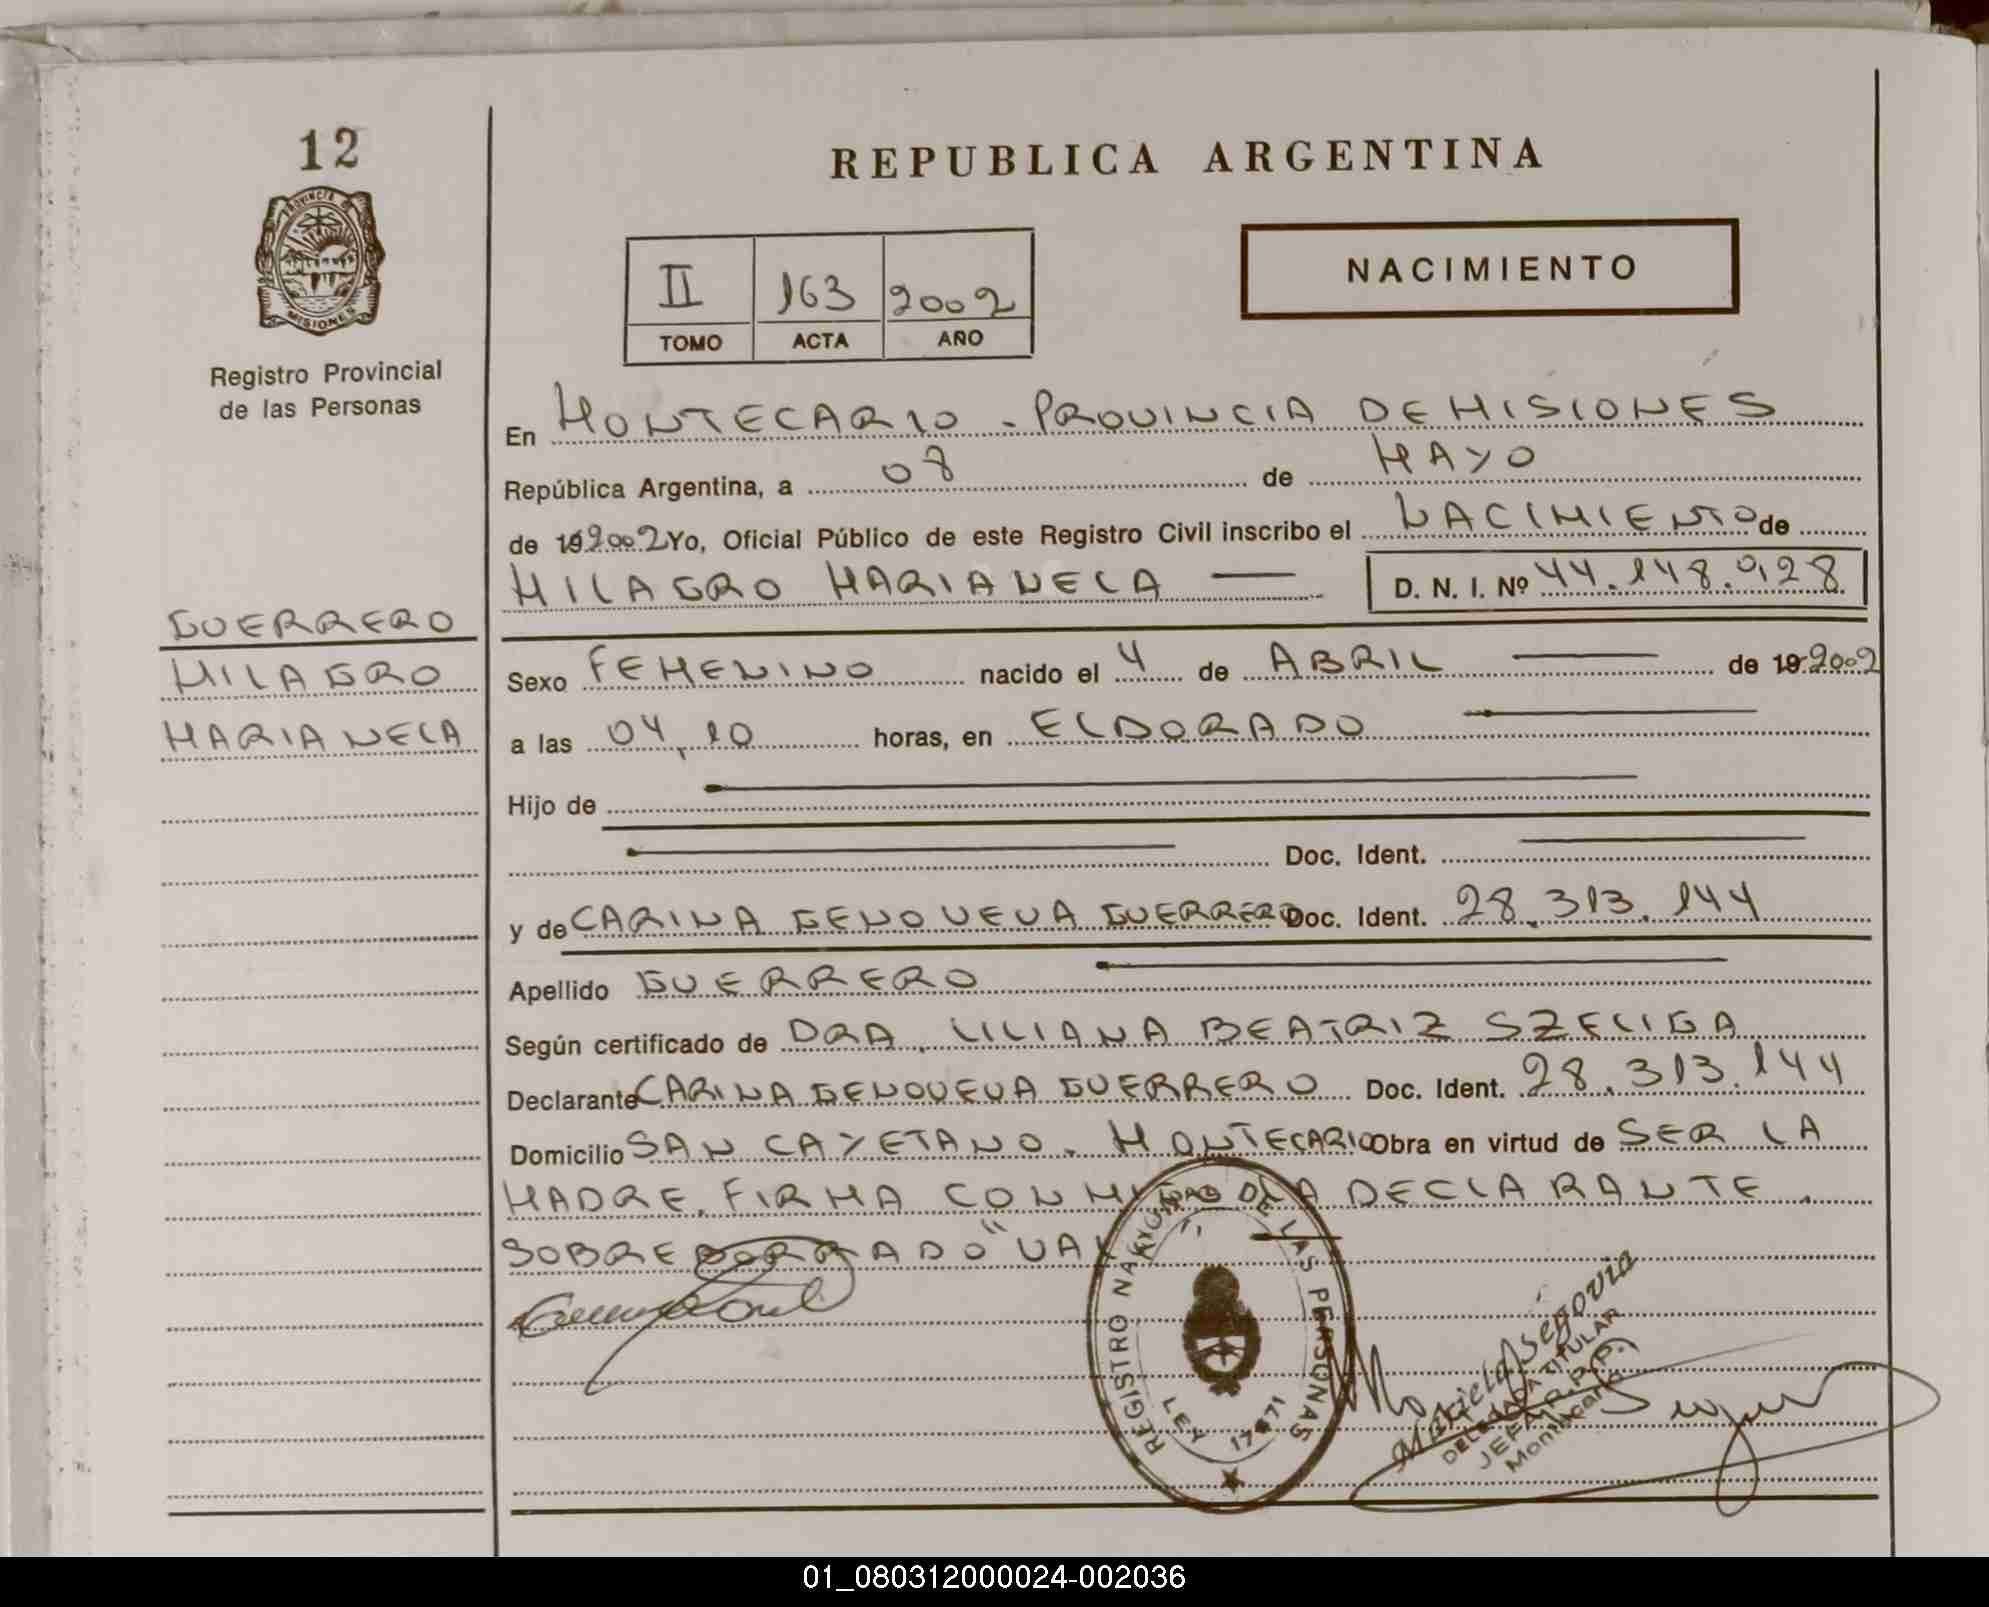 12
PROVINCIA DE
MISIONES
Registro Provincial
de las Personas
REPUBLICA ARGENTINA
II 163 2002
TOMO ACTA AÑO
NACIMIENTO
En MONTECARLO - PROVINCIA DE MISIONES
República Argentina, a 08 de MAYO
de 19 2002 Yo, Oficial Público de este Registro Civil inscribo el NACIMIENTO de
MILAGRO MARIANELA D. N. I. Nº 44.148.928
GUERRERO
MILAGRO
MARIANELA
Sexo FEMENINO nacido el 4 de ABRIL de 19 2002
a las 04,10 horas, en ELDORADO
Hijo de
Doc. Ident.
y de CARINA GENOVEVA GUERRERO Doc. Ident. 28.313.144
Apellido GUERRERO
Según certificado de DRA. LILIANA BEATRIZ SZELIGA
Declarante CARINA GENOVEVA GUERRERO Doc. Ident. 28.313.144
Domicilio SAN CAYETANO. MONTECARLO Obra en virtud de SER LA
MADRE. FIRMA CON MIGO LA DECLARANTE.
SOBREBORRADO "VA
REGISTRO NACIONAL DE LAS PERSONAS
LEY 17671
Mariela Segovia
DELEGADA TITULAR
JEFA R.P.P.
Montecarlo
01_080312000024-002036